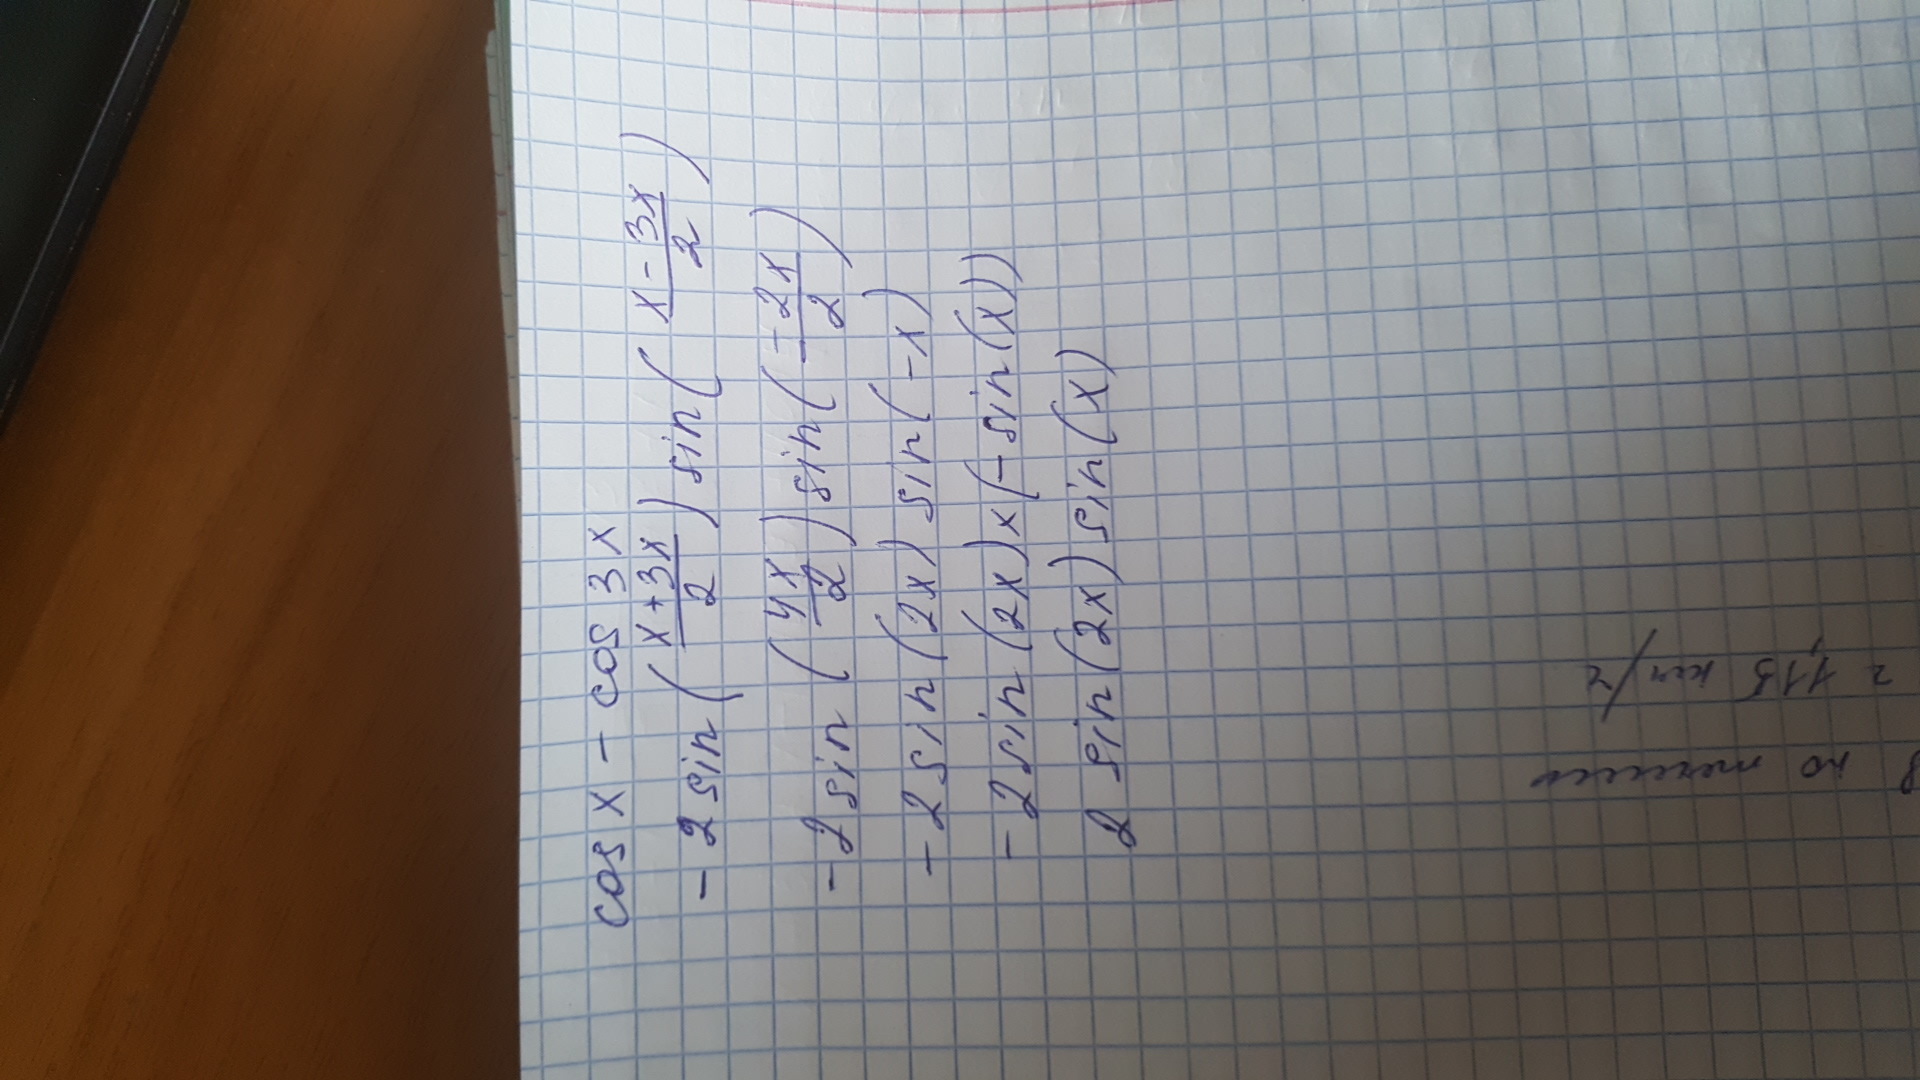 cos x - cos 3x
- 2 sin ( (x + 3x)/2 ) sin ( (x - 3x)/2 )
- 2 sin ( 4x/2 ) sin ( -2x/2 )
- 2 sin (2x) sin (-x)
- 2 sin (2x) x (- sin (x))
2 sin (2x) sin (x)